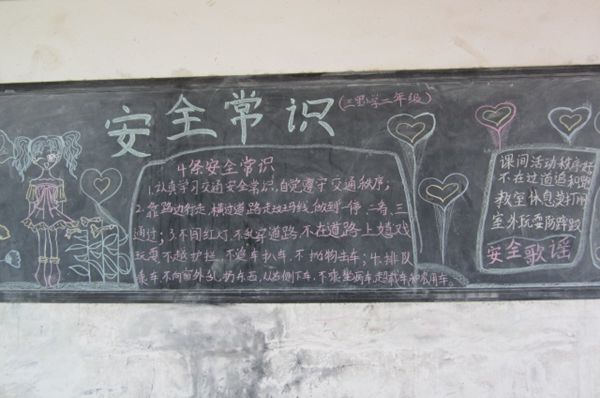 安全常识
(三里小学二年级)
4条安全常识
1.认真学习交通安全常识,自觉遵守交通秩序;
2.靠路边行走,横过道路走斑马线,做到一停、二看、三
通过;3.不闯红灯,不乱穿道路,不在道路上嬉戏
玩耍,不越护栏,不追车扒车,不抛物击车;4.排队
乘车,不向窗外乱扔东西,从右侧下车,不乘坐
课间活动秩序
不在过道追
教室休息莫打
室外玩耍防
安全歌谣